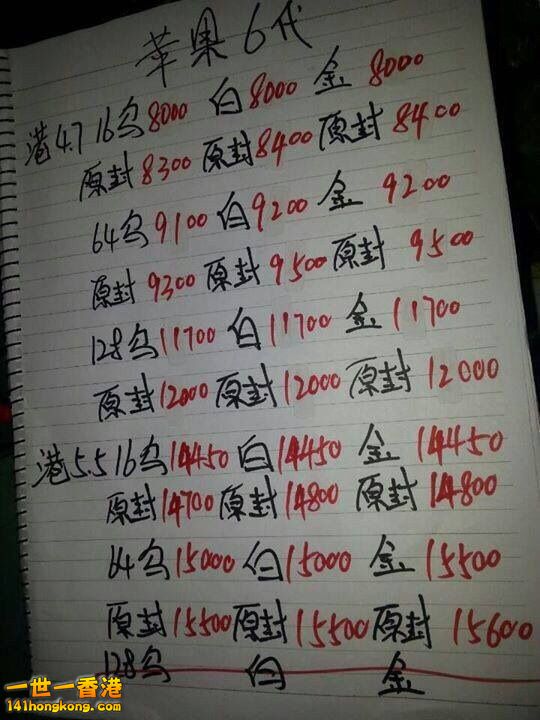 苹果6代
港4.7 16乌8000 白8000 金 8000
原封8300 原封8400 原封8400
64乌9100 白9200 金 9200
原封 9300 原封9500 原封 9500
128乌11700 白11700 金 11700
原封12000 原封12000 原封12000
港5.5 16乌14450 白14450 金 14450
原封14700 原封14800 原封14800
64乌15000 白15000 金 15500
原封15500 原封15500 原封 15600
128乌 白 金
一世一香港
141hongkong.com